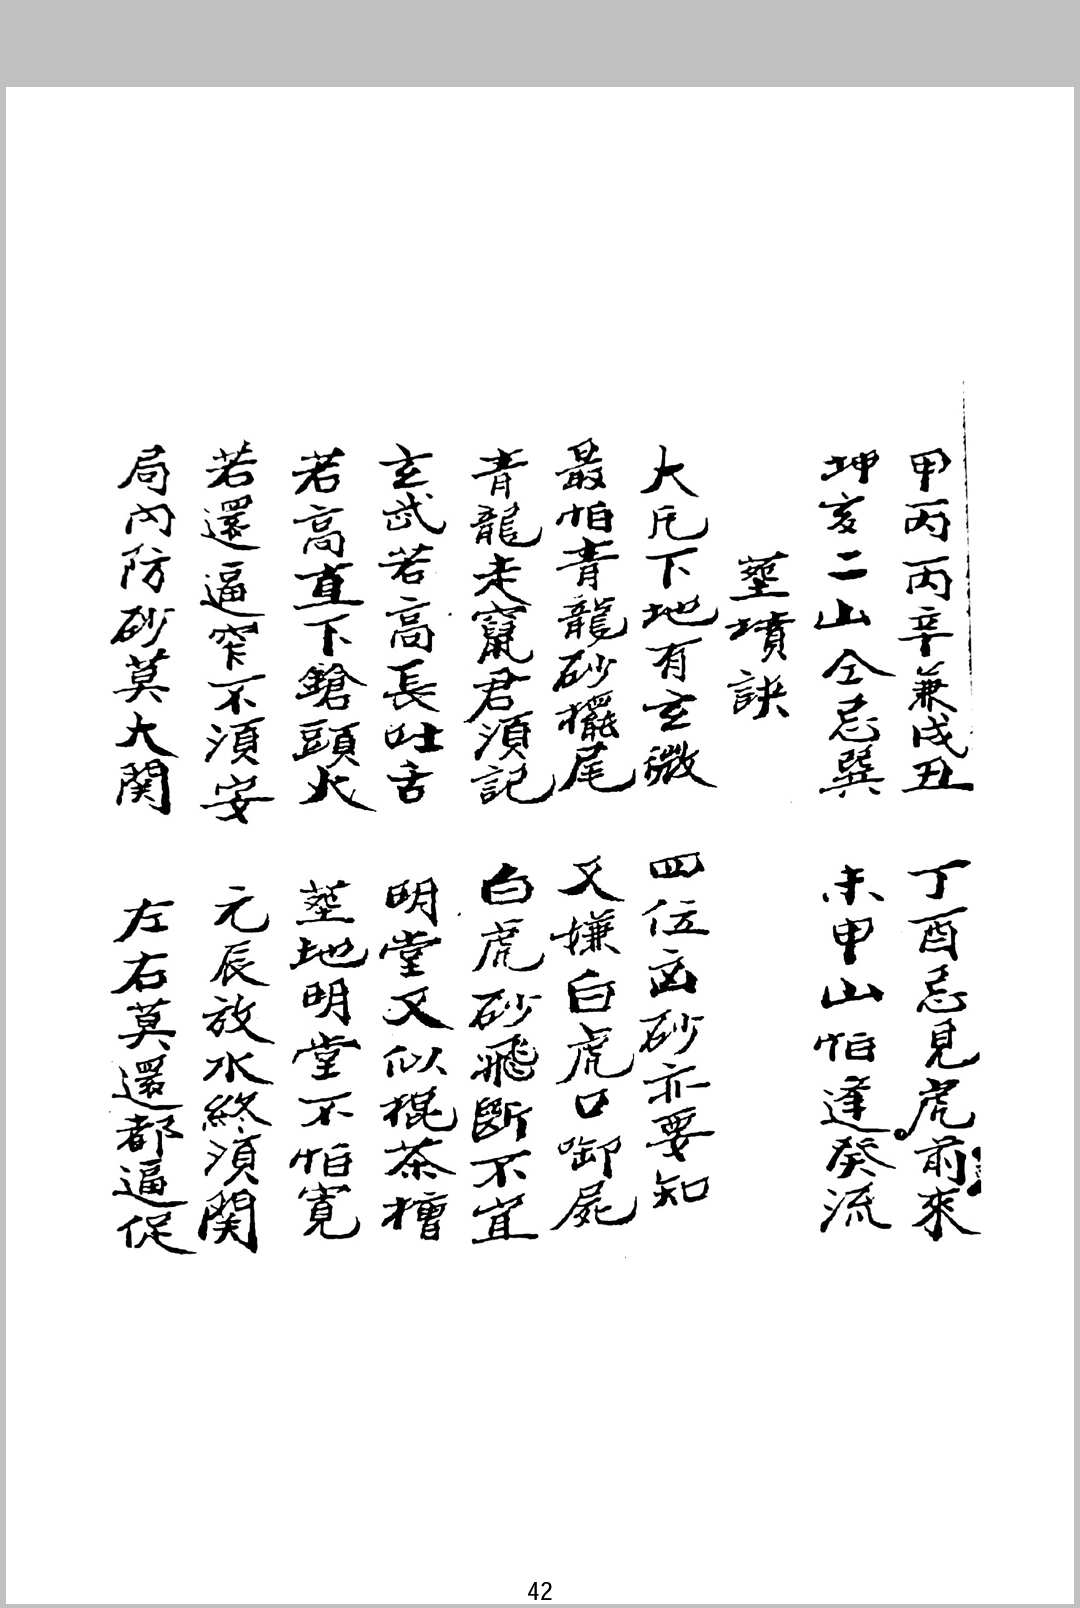 甲丙丙辛兼戌丑 丁酉忌見虎前來
坤亥二山仝忌巽 未甲山怕逢癸流
塋墳訣
大凡下地有玄微 四位凶砂亦要知
最怕青龍砂擺尾 又嫌白虎口啣屍
青龍走竄君須記 白虎砂飛斷不宜
玄武若高長吐舌 明堂又似棍茶槽
若高直下鎗頭火 塋地明堂不怕寬
若還逼窄不須安 元辰放水終須関
局內防砂莫大関 左右莫還都逼促
42